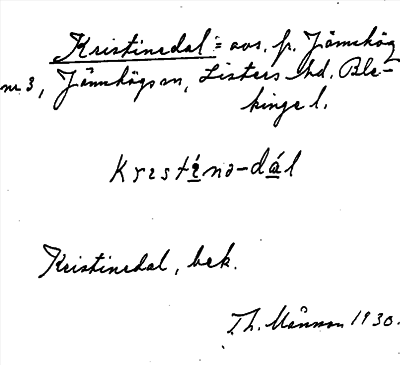 Kristinedal = avs. fr. Jämshög
nr. 3, Jämshögs sn, Listers hd. Ble-
kinge l.
Krıstı́nə-dál
Kristinedal, bek.
Th. Månsson 1930.